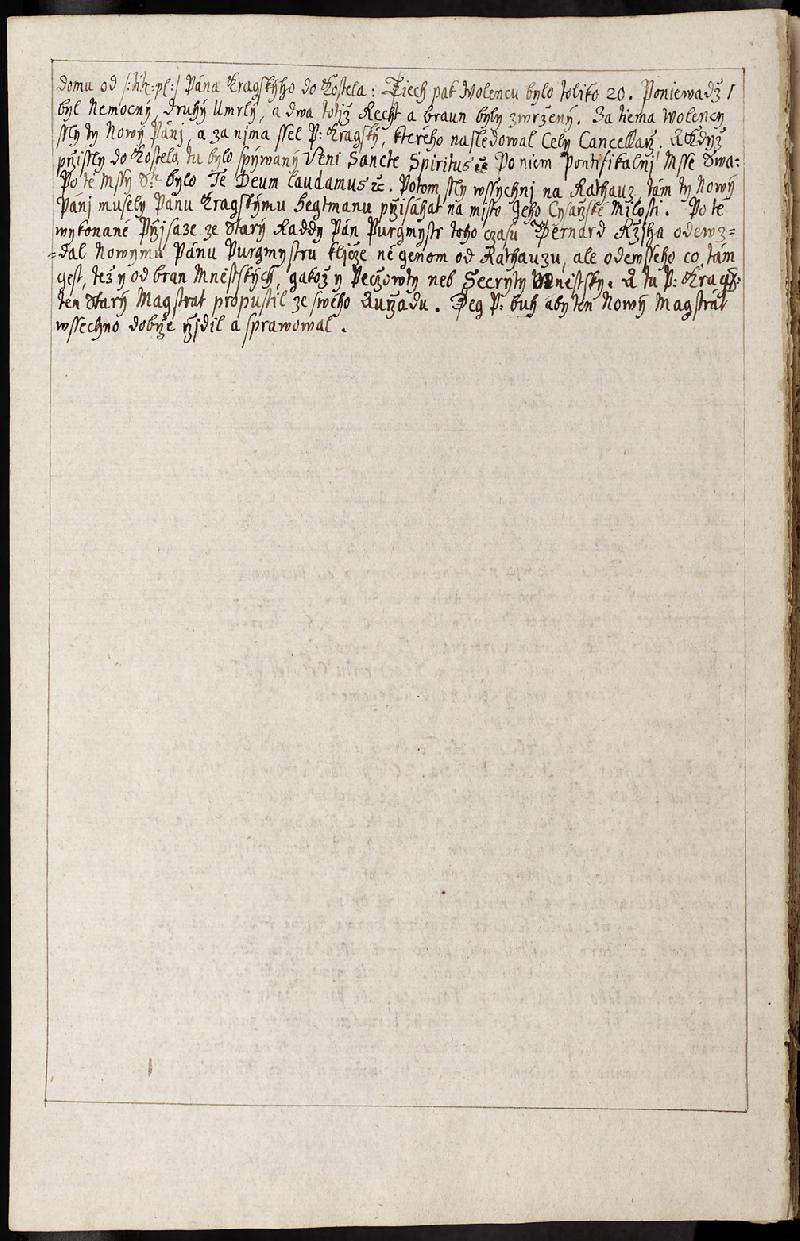 domu od /:tit: pl:/ Pána Kragskýho do Kostela: Tiech pak Wolencu bylo toliko 20. Poniewadž /
byl Nemocný, druhý Umrlý, a dwa totiž Recht a braun byly zwrženy. Za niema Wolency
ssly ty Nowý Pánj, a za nima ssel P: Kragský, kterého nasledowal Cely Cancellarž. A když
přissly do Kostela tu bylo spýwaný Veni Sancte Spiritus ꝛc Po niem Pontifikalnj Msse Swa:
Po té Mssy S: bylo Te Deum Laudamus ꝛc. Potom ssly wssychnj na Rathauz. tám ty Nowý
Pánj musely Pánu Kragskýmu Hegtmanu přisahat na misto Jeho Cysařské Milosti. Po té
wykonané Přjsaze ze Starý Raddy Pán Purgmystr toho czasu Bernard Ržiha odewz=
=dal Nowymu Pánu Purgmystru kljcže negenom od Rathauzu, ale odewsseho co tám
gest, též y od bran Mnestských, gakož y Peczowty neb Secryty Mnestský. A tu P: Kragsk:
ten Starý Magstrat propustil ze swého Auržadu. Deg P: buh aby ten Nowý Magstrát
wssechno dobrže ržjdil a sprawowal.